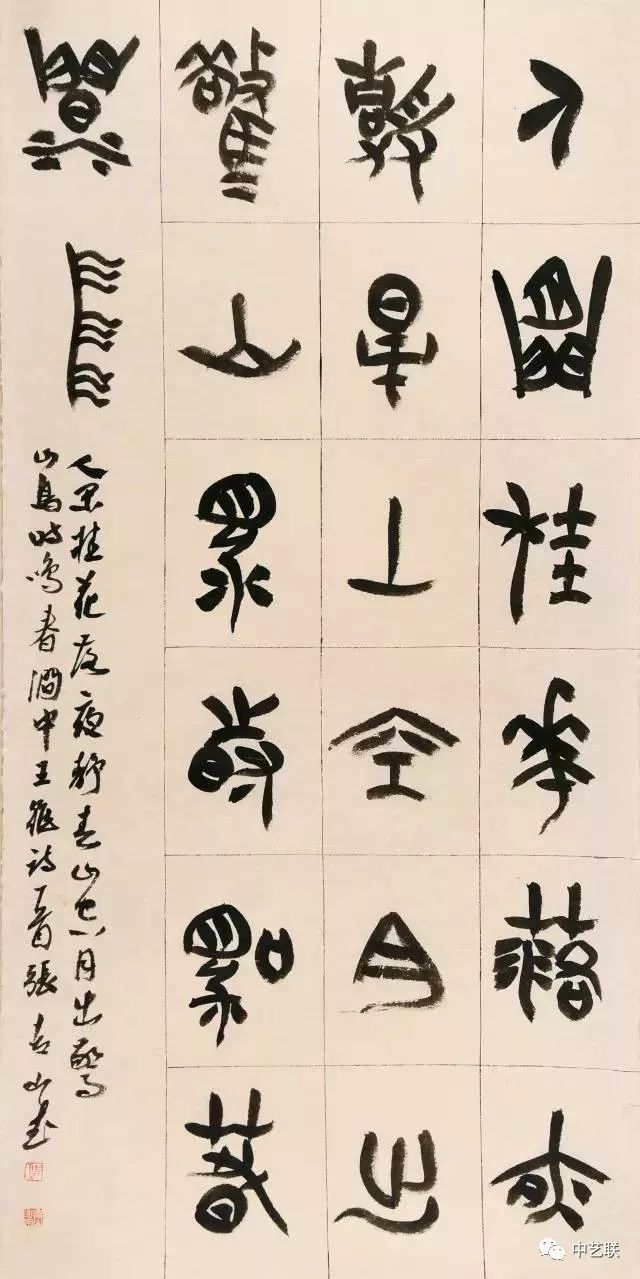 人閒桂華落夜
靜春山空月出
驚山鳥時鳴春
澗中
人閒桂花落夜靜春山空月出驚
山鳥時鳴春澗中王維詩一首張山書
中艺联